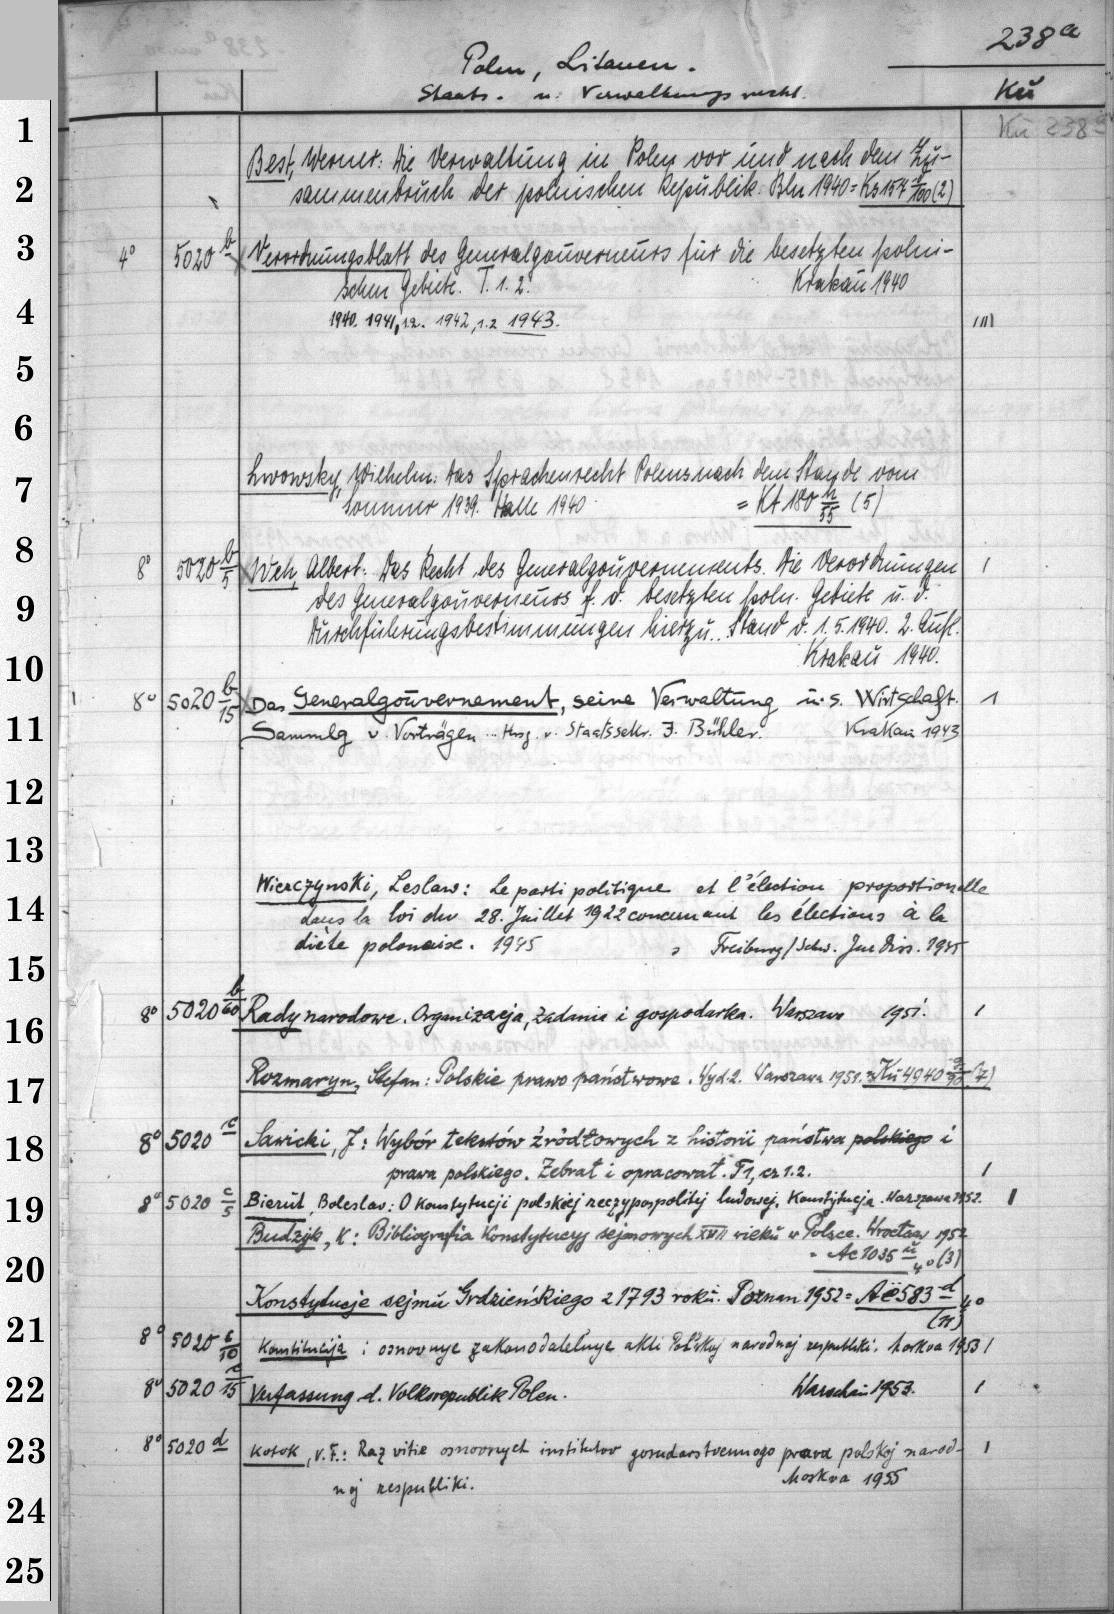 238a
Polen, Litauen.
Staats- u. Verwaltungsrecht.
Kü
Kü 238a
1
Best, Werner: Die Verwaltung in Polen vor und nach dem Zu-
2
sammenbruch der polnischen Republik. Bln 1940 = Ks 154 /100 (2)
3
4° 5020 b Verordnungsblatt des Generalgouverneurs für die besetzten polni-
schen Gebiete. T. 1. 2. Krakau 1940
4
1940. 1941, 1.2. 1942, 1.2 1943. IIII
5
6
7
Lwowsky, Wilhelm: Das Sprachenrecht Polens nach dem Stande vom
Sommer 1939. Halle 1940 = Kt 180 n/55 (5)
8
8° 5020 b/5 Weh, Albert: Das Recht des Generalgouvernements. Die Verordnungen I
9
des Generalgouverneurs f. d. besetzten poln. Gebiete u. d.
Durchführungsbestimmungen hierzu. Stand v. 1.5.1940. 2. Aufl.
10
Krakau 1940.
8° 5020 b/15 Das Generalgouvernement, seine Verwaltung u. s. Wirtschaft. 1
11
Sammlg v. Vorträgen ... Hrsg. v. Staatssekr. J. Bühler. Krakau 1943
12
13
14
Wierczynski, Leslaw: Le parti politique et l'élection proportionelle
dans la loi du 28. Juillet 1922 concernant les élections à la
diète polonaise. 1945 Freiburg/Schw. Jur Diss. 1945
15
16
8° 5020 b/60 Rady narodowe. Organizacja, zadania i gospodarka. Warszawa 1951. I
17
Rozmaryn, Stefan: Polskie prawo państwowe. Wyd. 2. Warszawa 1951. = Kü 4940 a/90 (7)
18
8° 5020 c Sawicki, J: Wybór tekstów źródłowych z historii państwa polskiego i
prawa polskiego. Zebrał i opracował. T 1, cz 1.2. I
19
8° 5020 c/5 Bierut, Boleslav: O Konstytucji polskiej rzeczypospolitej ludowej. Konstytucja. Warszawa 1952. I
Budzyk, K: Bibliografia Konstytucyj sejmowych XVII wieku w Polsce. Wrocław 1952
20
= Ac 1035 4° (3)
Konstytucje sejmu Grdzieńskiego z 1793 roku. Poznan 1952 = Aë 583 d 4°
21
8° 5020 c/10 Konstitucija i osnovnye zakonodatel'nye akti Pol'skoj narodnoj respubliki. Moskva 1953 I
22
8° 5020 c/15 Verfassung d. Volksrepublik Polen. Warschau 1953. I
23
8° 5020 d Kotok, V. F.: Razvitie osnovnych institutov gosudarstvennogo prava polskoj narod- I
noj respubliki. Moskva 1955
24
25